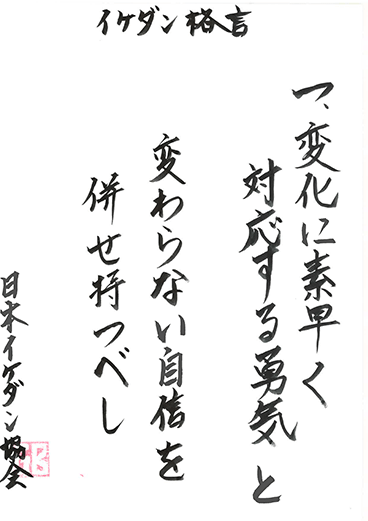 イケダン格言
一、変化に素早く
対応する勇気と
変わらない自信を
併せ持つべし
日本イケダン協会